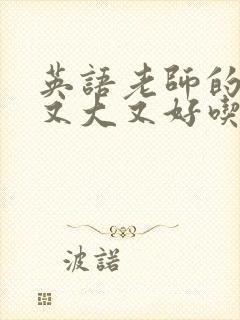 英語老師的
又大又好喫
波諾